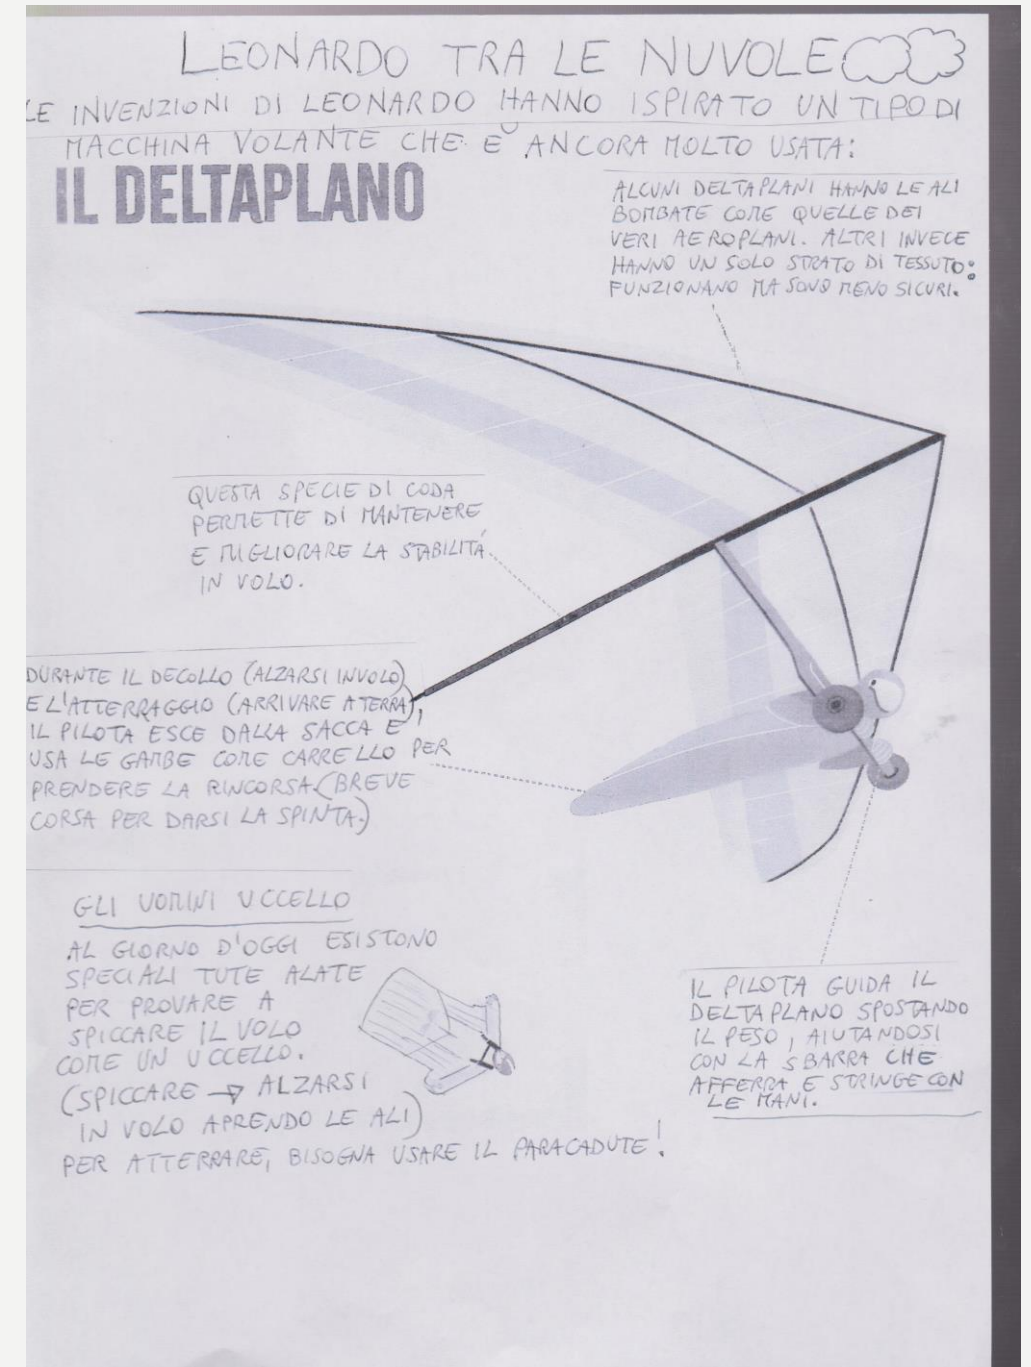 LEONARDO TRA LE NUVOLE
LE INVENZIONI DI LEONARDO HANNO ISPIRATO UN TIPO DI
MACCHINA VOLANTE CHE È ANCORA MOLTO USATA:
IL DELTAPLANO
ALCUNI DELTAPLANI HANNO LE ALI
BOMBATE COME QUELLE DEI
VERI AEROPLANI. ALTRI INVECE
HANNO UN SOLO STRATO DI TESSUTO:
FUNZIONANO MA SONO MENO SICURI.
QUESTA SPECIE DI CODA
PERMETTE DI MANTENERE
E MIGLIORARE LA STABILITÁ
IN VOLO.
DURANTE IL DECOLLO (ALZARSI IN VOLO)
E L'ATTERRAGGIO (ARRIVARE A TERRA),
IL PILOTA ESCE DALLA SACCA E
USA LE GAMBE COME CARRELLO PER
PRENDERE LA RINCORSA. (BREVE
CORSA PER DARSI LA SPINTA.)
GLI UOMINI UCCELLO
AL GIORNO D'OGGI ESISTONO
SPECIALI TUTE ALATE
PER PROVARE A
SPICCARE IL VOLO
COME UN UCCELLO.
(SPICCARE → ALZARSI
IN VOLO APRENDO LE ALI)
PER ATTERRARE, BISOGNA USARE IL PARACADUTE!
IL PILOTA GUIDA IL
DELTAPLANO SPOSTANDO
IL PESO, AIUTANDOSI
CON LA SBARRA CHE
AFFERRA E STRINGE CON
LE MANI.